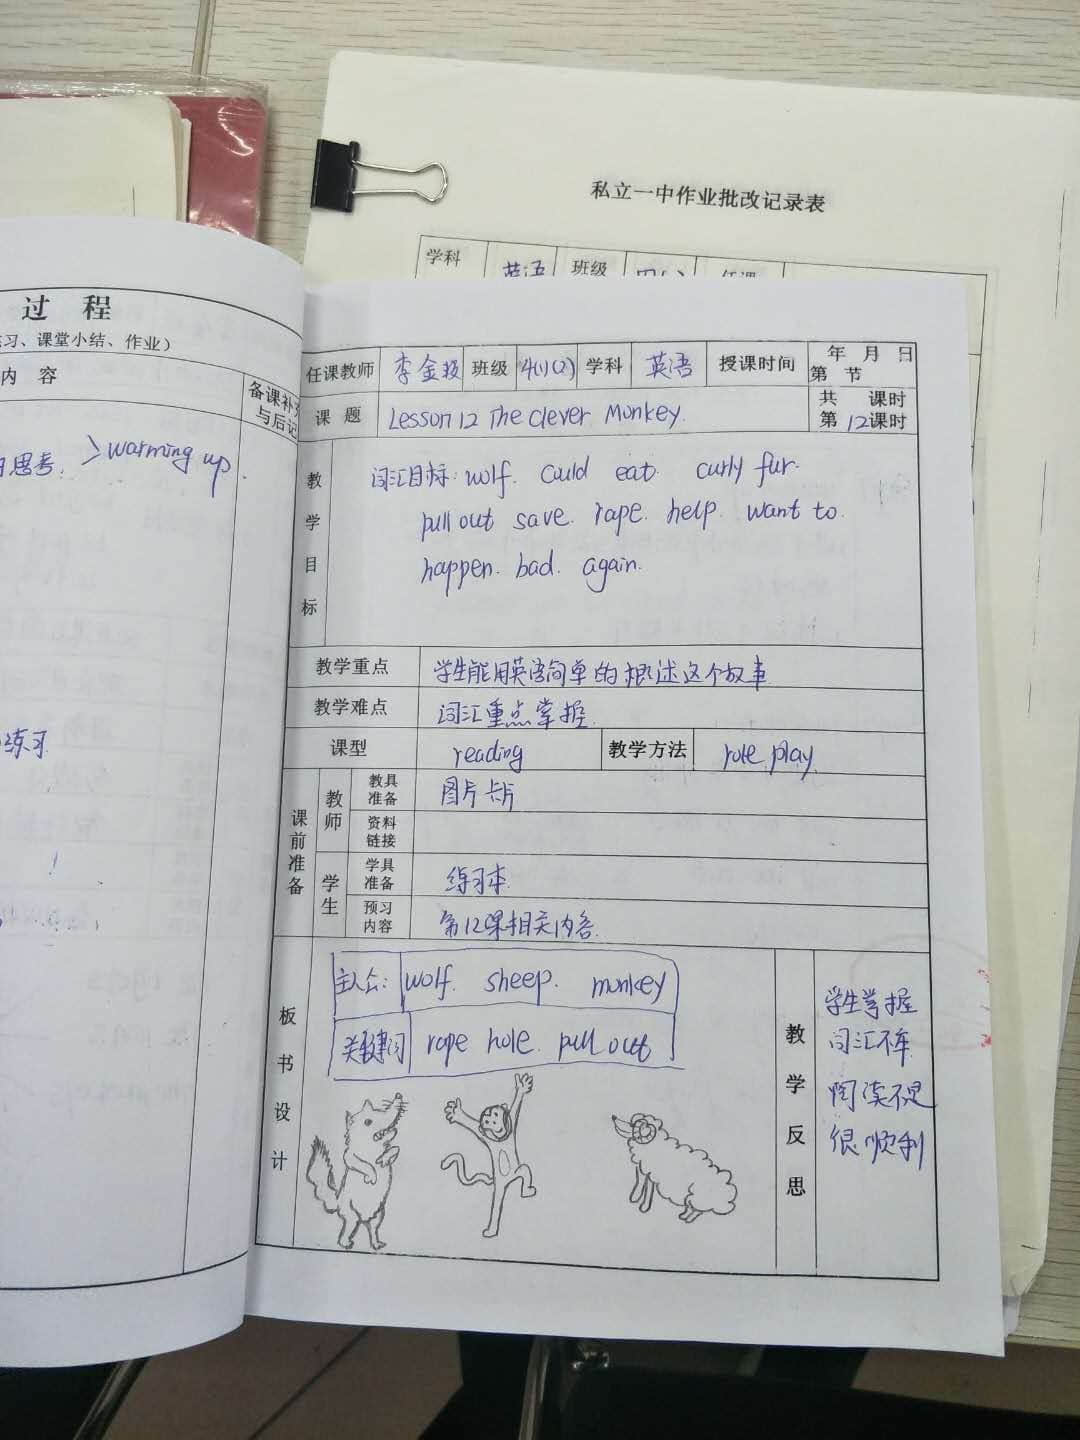 私立一中作业批改记录表
学科 英语 班级
过 程
练习、课堂小结、作业）
内 容
备课补充
与后记
思考. > warming up.
练习
任课教师 李金 班级 4(1)(2) 学科 英语 授课时间 年 月 日
第 节
课 题 Lesson 12 The Clever Monkey. 共 课时
第 12 课时
教学目标 词汇目标: wolf. could eat. curly fur.
pull out save. rape. help. want to.
happen. bad. again.
教学重点 学生能用英语简单的概述这个故事
教学难点 词汇重点掌握.
课型 reading 教学方法 role play.
课前准备 教师 教具准备 图片 卡片
资料链接
学生 学具准备 练习本.
预习内容 第12课相关内容.
板书设计 主人公: wolf. sheep. monkey
关键词 rope hole. pull out
教学反思 学生掌握
词汇不牢.
阅读不是
很顺利